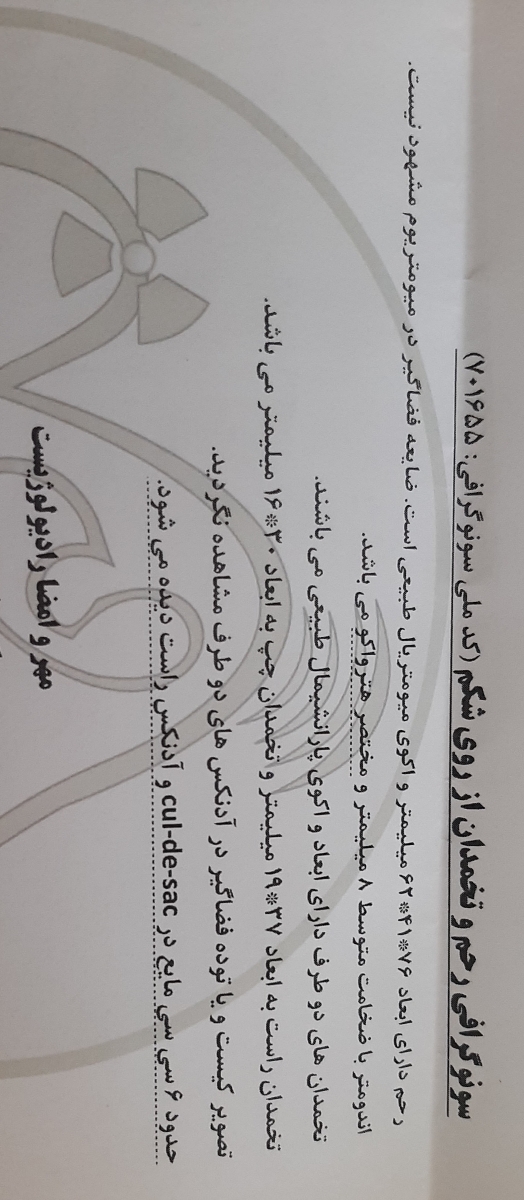 سونوگرافی رحم و تخمدان از روی شکم (کد ملی سونوگرافی: ۷۰۱۶۵۵)
رحم دارای ابعاد ۷۶*۴۱*۶۲ میلیمتر و اکوی میومتریال طبیعی است. ضایعه فضاگیر در میومتریوم مشهود نیست.
اندومتر با ضخامت متوسط ۸ میلیمتر و مختصر هترواکو می باشد.
تخمدان های دو طرف دارای ابعاد و اکوی پارانشیمال طبیعی می باشند.
تخمدان راست به ابعاد ۳۷*۱۹ میلیمتر و تخمدان چپ به ابعاد ۳۰*۱۶ میلیمتر می باشد.
تصویر کیست و یا توده فضاگیر در آدنکس های دو طرف مشاهده نگردید.
حدود ۶ سی سی مایع در cul-de-sac و آدنکس راست دیده می شود.
مهر و امضا رادیولوژیست